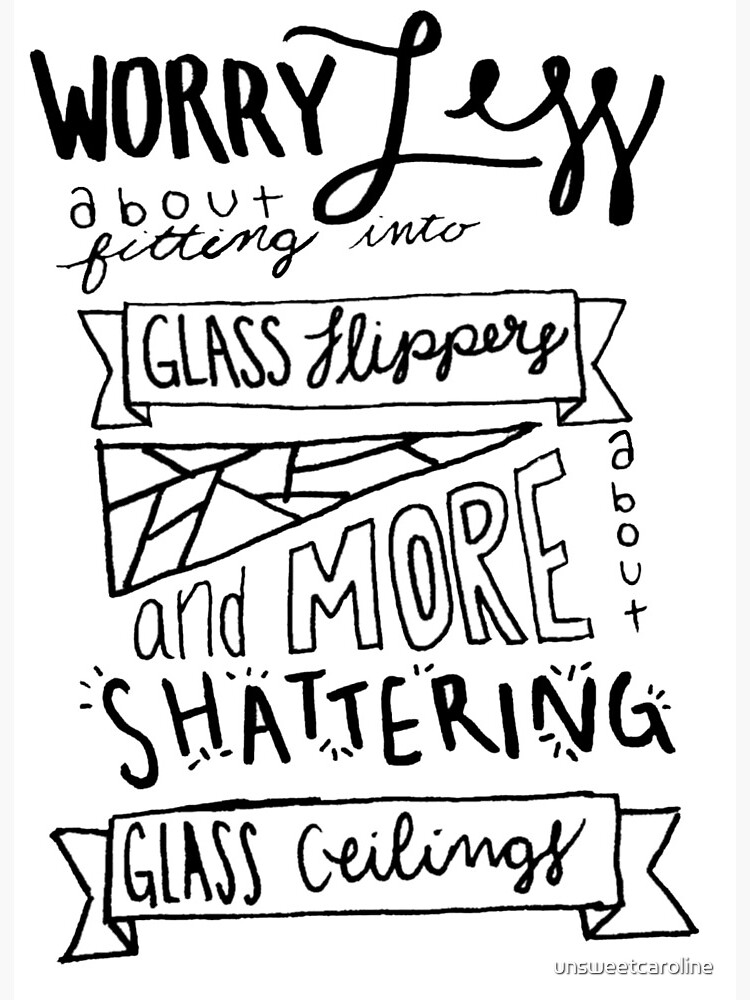 WORRY Less
about
fitting into
GLASS slippers
and MORE about
SHATTERING
GLASS Ceilings
unsweetcaroline